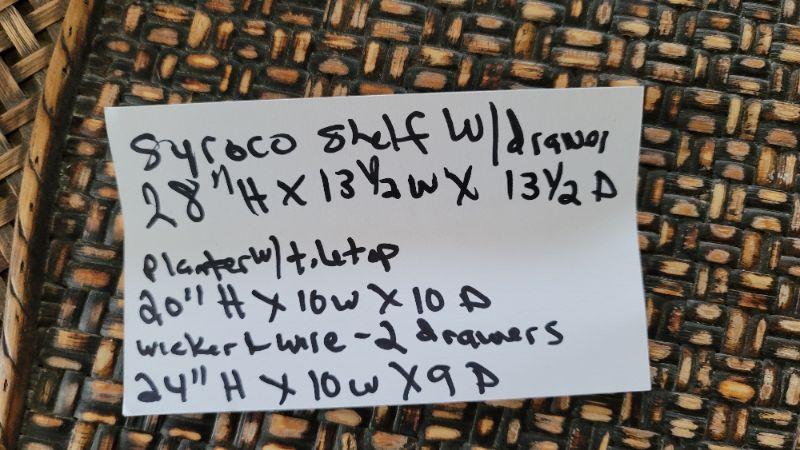 Syroco Shelf W/drawer
28" H X 13 1/2 W X 13 1/2 D
Planter W/tiletop
20" H X 10 W X 10 D
Wicker + Wire - 2 drawers
24" H X 10 W X 9 D